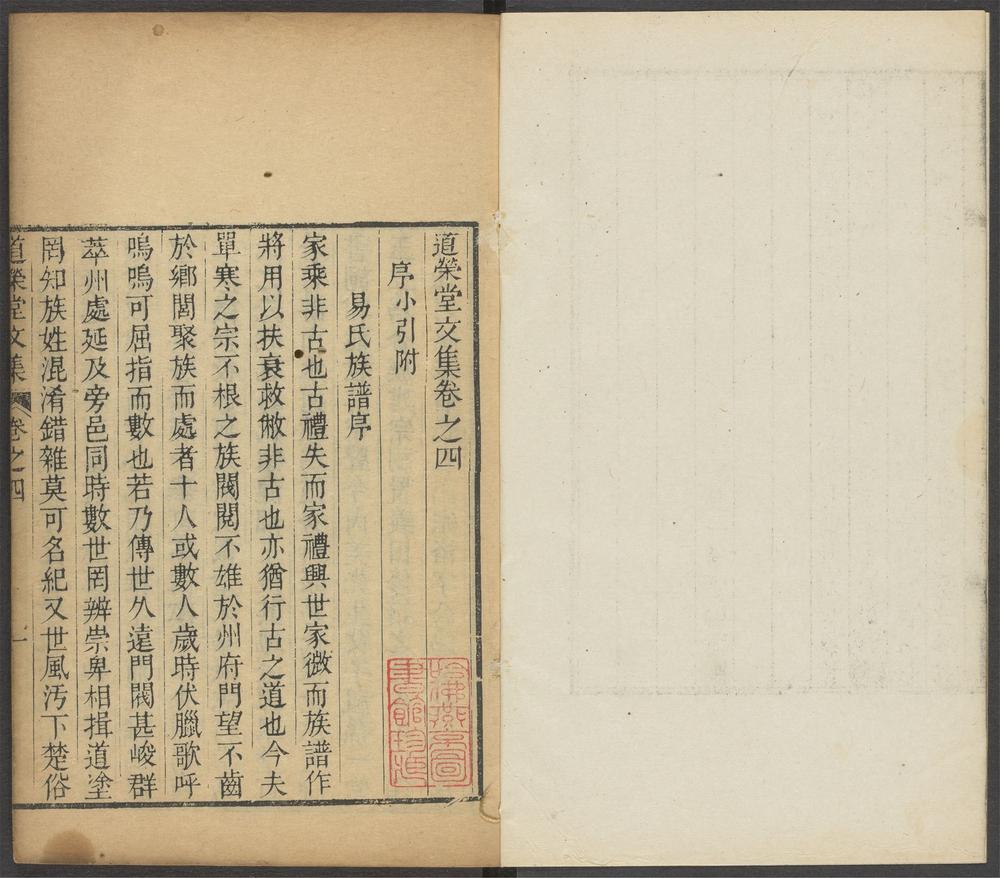 道榮堂文集卷之四
序小引附
易氏族譜序
家乘非古也古禮失而家禮興世家微而族譜作
將用以扶衰救敝非古也亦猶行古之道也今夫
單寒之宗不根之族閥閱不雄於州府門望不齒
於鄉閭聚族而處者十人或數人歲時伏臘歌呼
嗚嗚可屈指而數也若乃傳世久遠門閥甚峻群
萃州處延及旁邑同時數世罔辨崇卑相揖道塗
罔知族姓混淆錯雜莫可名紀又世風汚下楚俗
道榮堂文集 卷之四 一
哈佛燕京圖書館珍藏